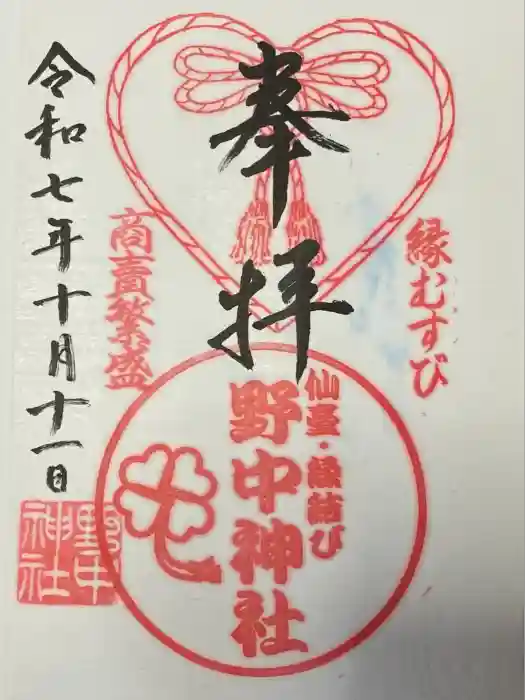 縁むすび
奉拝
仙臺・縁結び
野中神社
商賣繁盛
令和七年十月十一日
野中
神社